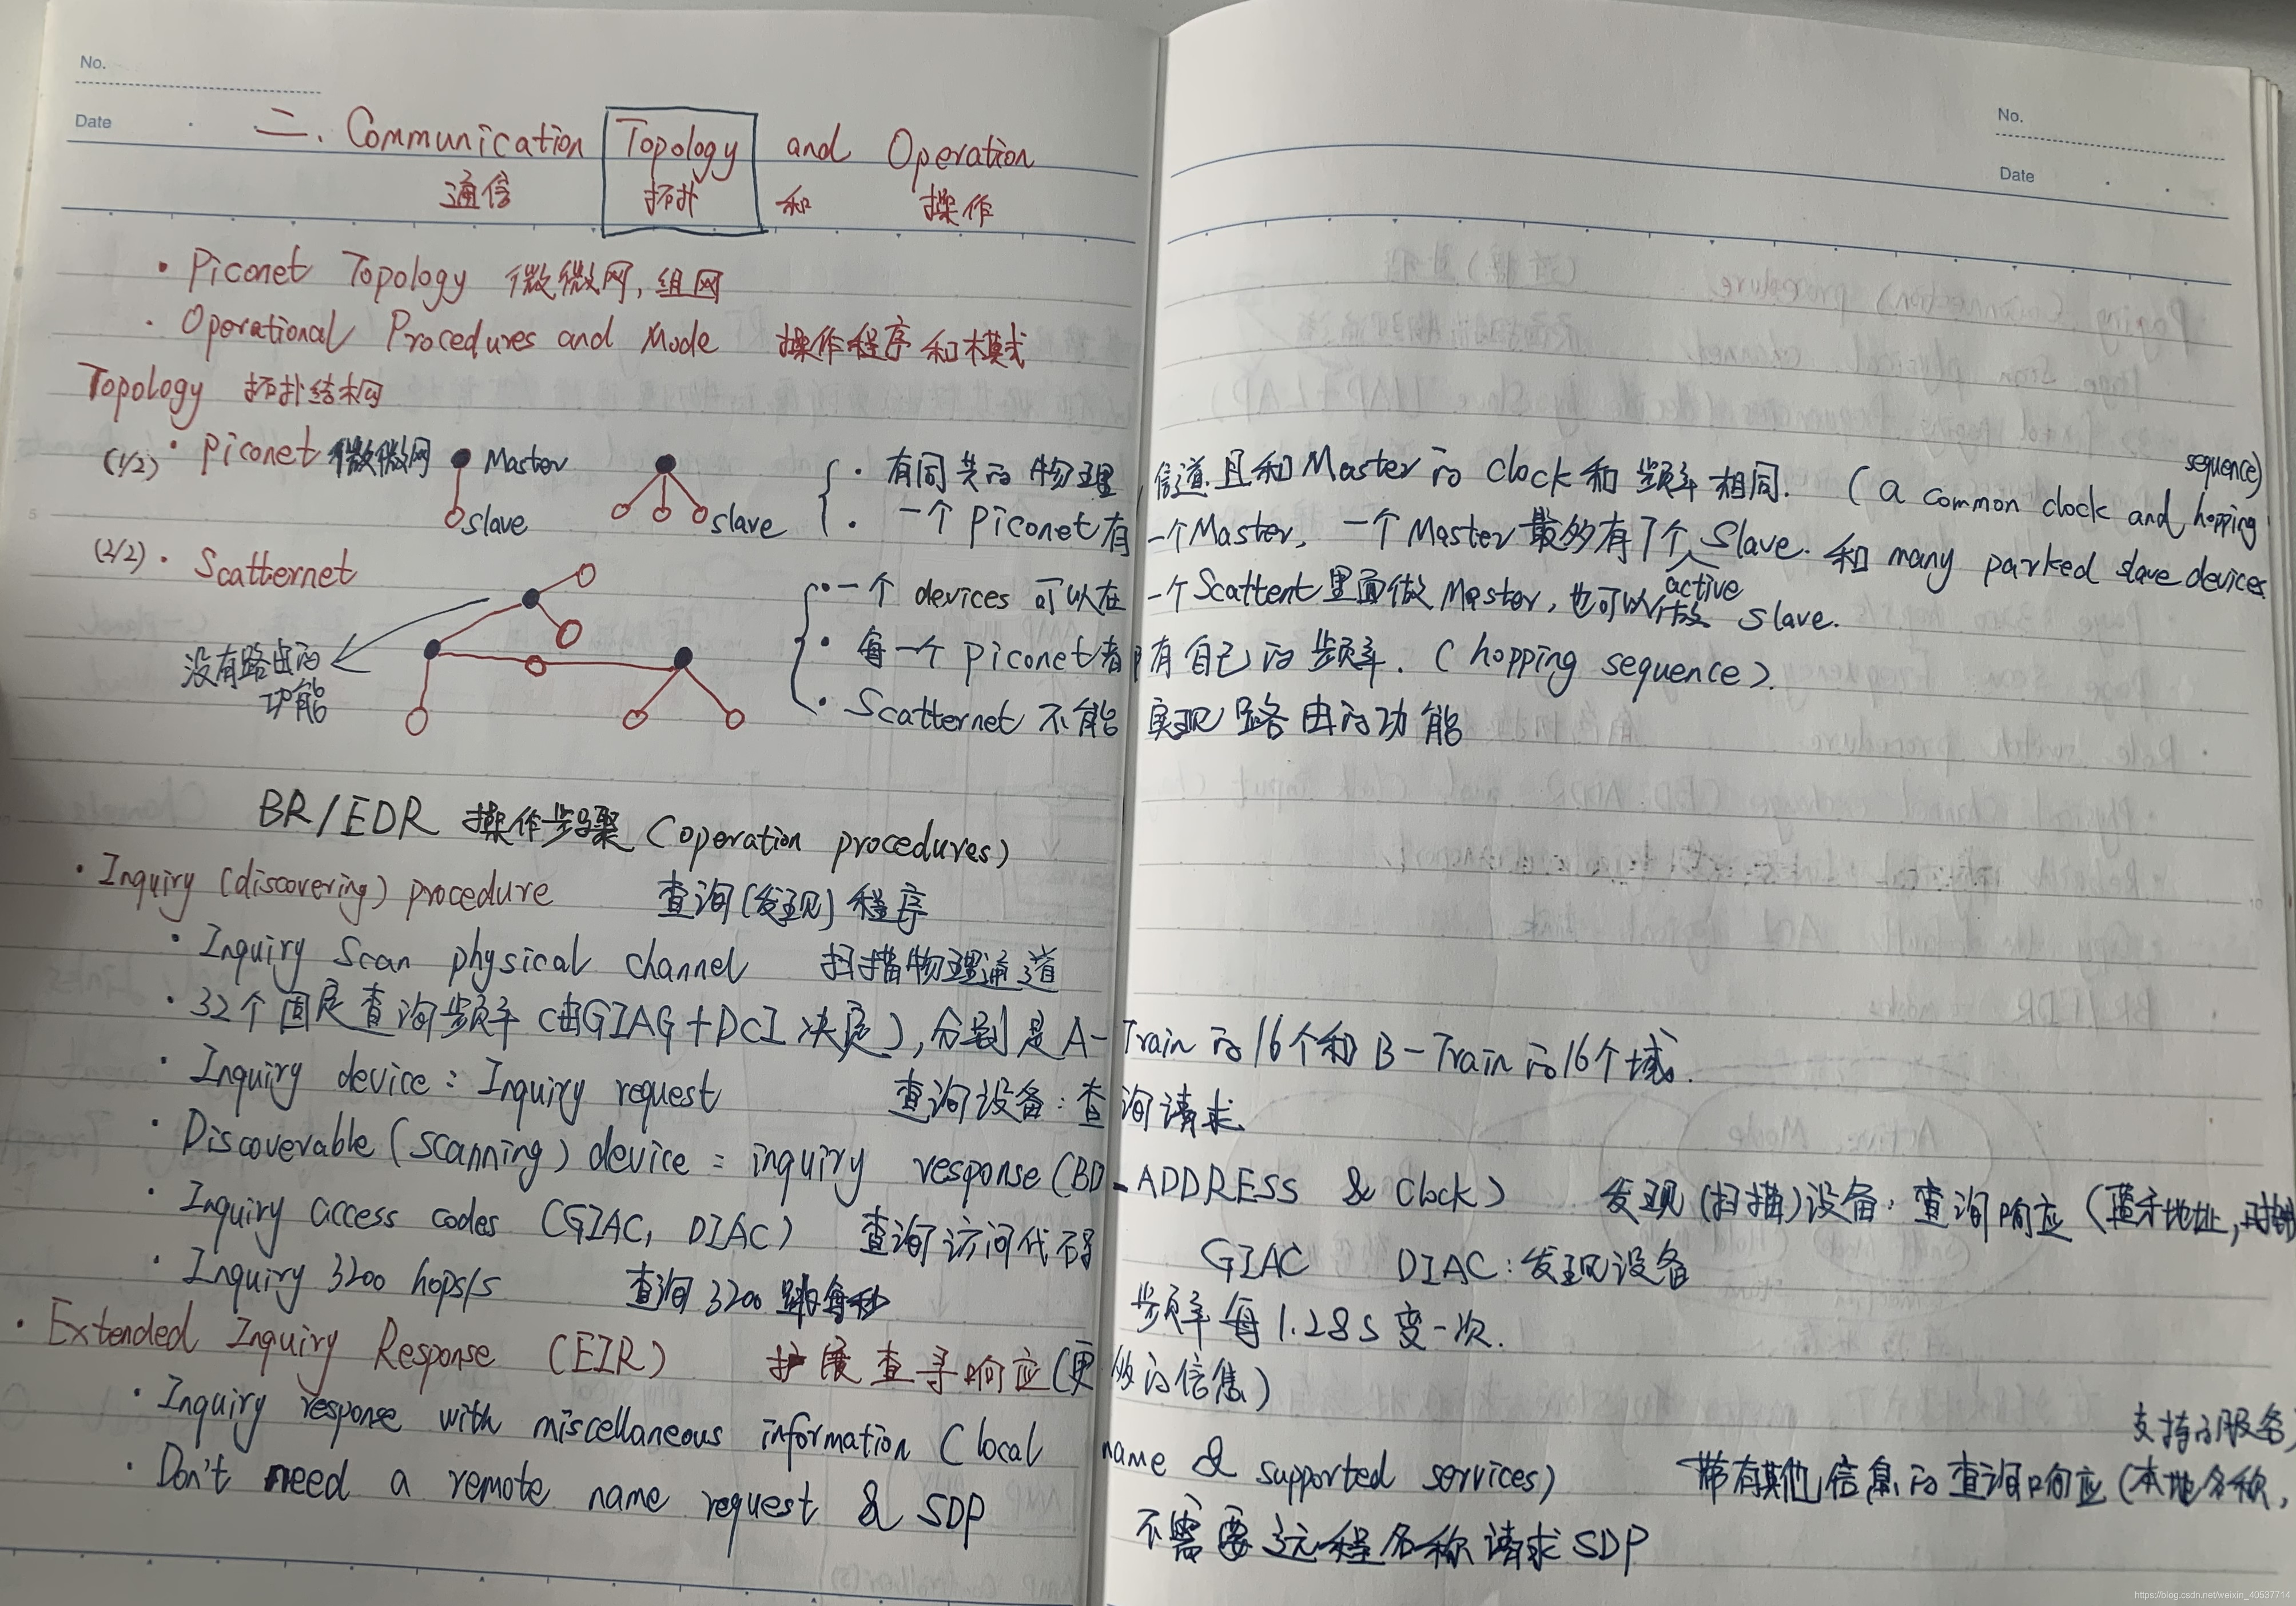 No.
Date
No.
Date
二. Communication Topology and Operation
通信 拓扑 和 操作
· Piconet Topology 微微网, 组网
· Operational Procedures and Mode 操作程序和模式
Topology 拓扑结构网
(1/2) · Piconet 微微网 Master slave slave
· 有同共的物理信道且和Master的clock和频率相同. (a common clock and hopping sequence)
· 一个Piconet有一个Master, 一个Master最多有7个active Slave. 和many parked slave devices
(2/2) · Scatternet
· 一个devices可以在一个Scattent里面做Master, 也可以做slave.
没有路由的功能
· 每一个Piconet都有自己的频率. (hopping sequence).
· Scatternet不能实现路由的功能
BR/EDR 操作步骤 (operation procedures)
· Inquiry (discovering) procedure 查询(发现)程序
· Inquiry Scan physical channel 扫描物理通道
· 32个固定查询频率 (由GIAG+DCI决定), 分别是A-Train的16个和B-Train的16个域.
· Inquiry device: Inquiry request 查询设备: 查询请求
· Discoverable (scanning) device: inquiry response (BD_ADDRESS & Clock) 发现(扫描)设备: 查询响应 (蓝牙地址, 时钟
· Inquiry access codes (GIAC, DIAC) 查询访问代码 GIAC DIAC: 发现设备
· Inquiry 3200 hops/s 查询3200跳每秒 频率每1.28s变一次.
· Extended Inquiry Response (EIR) 扩展查寻响应(更多的信息)
· Inquiry response with miscellaneous information (local name & supported services) 带有其他信息的查询响应 (本地名称, 支持的服务)
· Don't need a remote name request & SDP 不需要远程名称请求SDP
https://blog.csdn.net/weixin_40537714